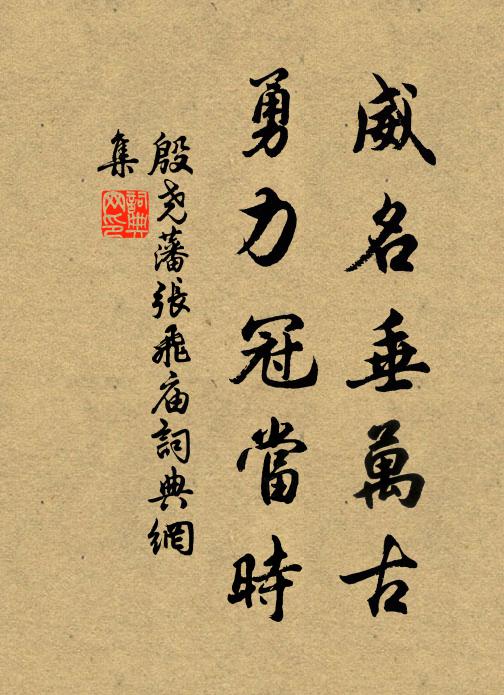 威名垂萬古
勇力冠當時
殷尧藩張飛庙詞典網
集
詞典
网印